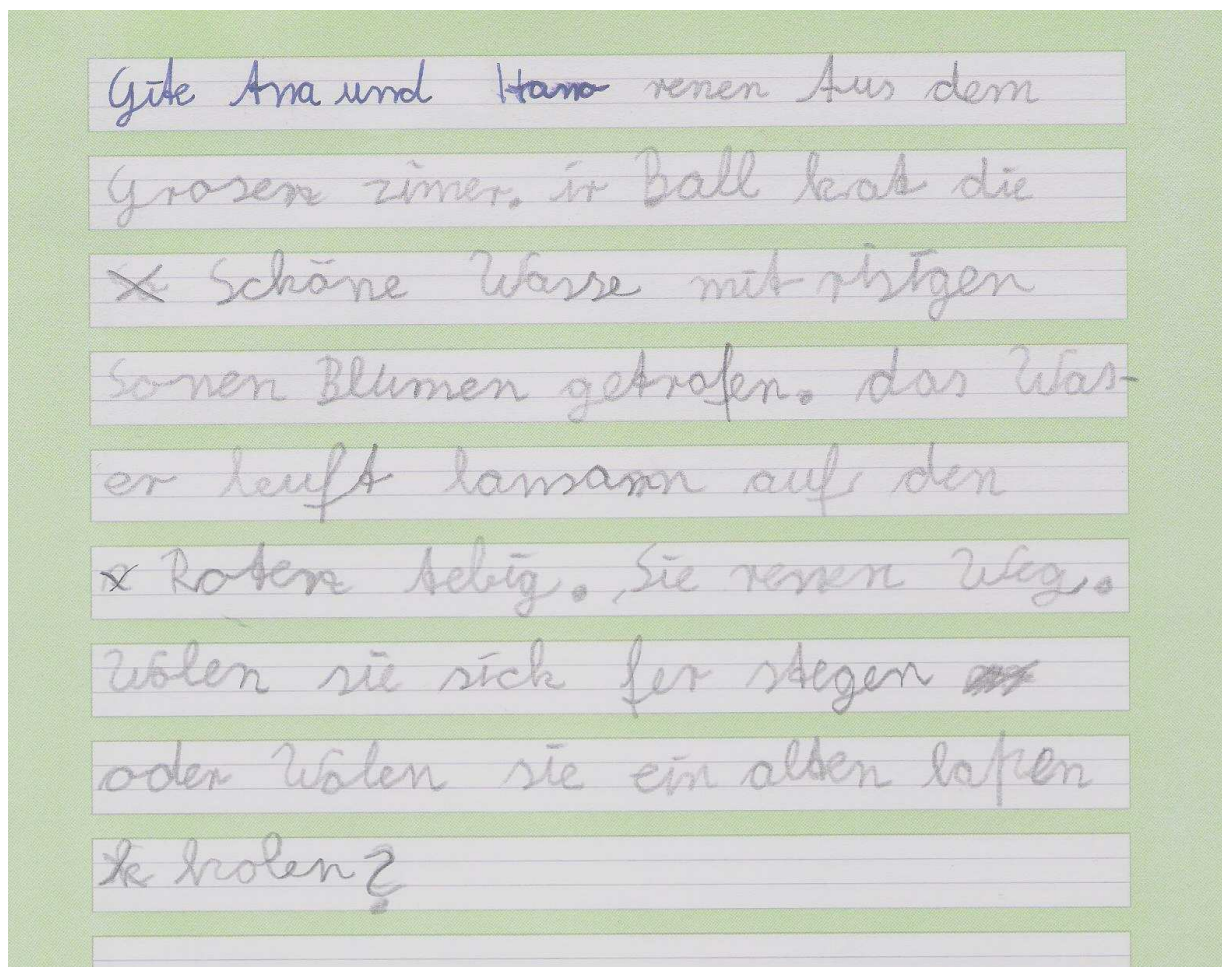 Gite Ana und Hano renen Aus dem
Grosen zimer. ir Ball hat die
Schöne Wasse mit risigen
Sonen Blumen getrofen. das Was-
er leuft lamsamm auf den
Roten tebig. Sie renen Weg.
Wolen sie sich fer stegen
oder Wolen sie ein alten lapen
holen?